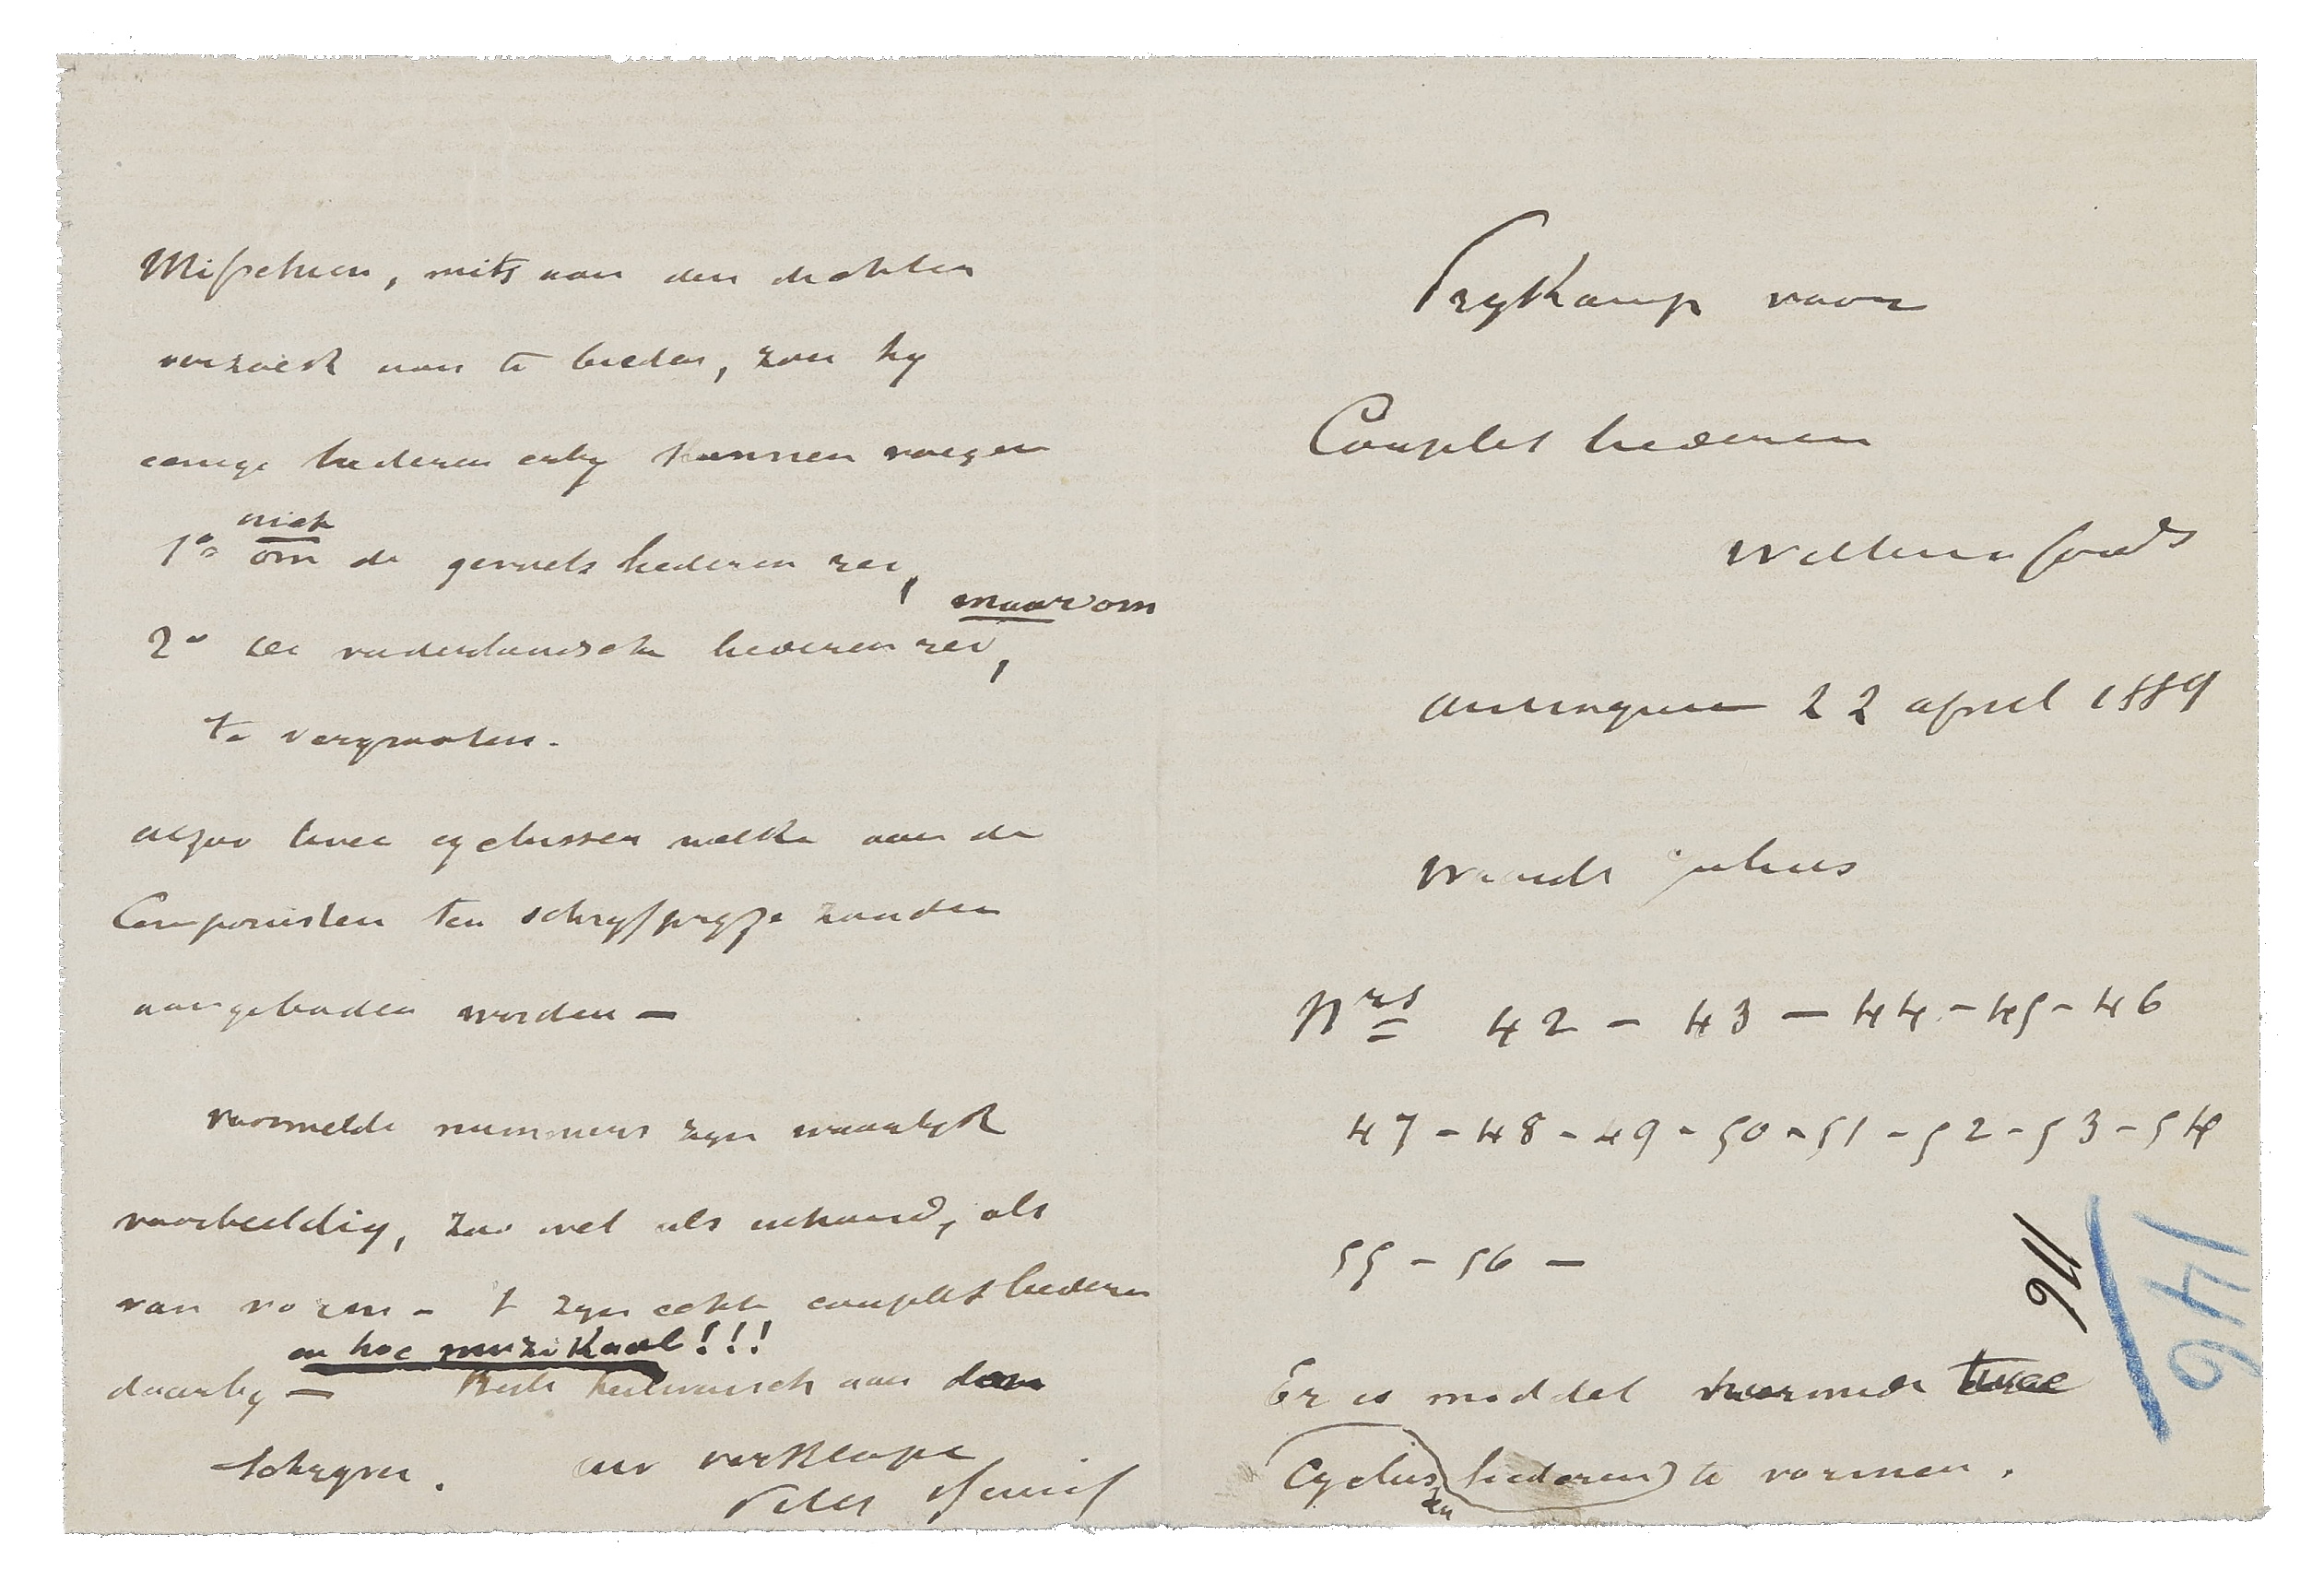 Prykamp voor
Couplet liederen
Willemsfonds
Antwerpen 22 april 1889
Waarde Julius
Nrs 42 - 43 - 44 - 45 - 46
47 - 48 - 49 - 50 - 51 - 52 - 53 - 54
55 - 56 -
Er is middel hiermede twee
Cyclussen (liederen) te vormen.
116
146
Misschien, mits aan den dichter
verzoek aan te bieden, zou hy
eenige liederen erby kunnen voegen
niet
1° om de gevoels liederen rei,
maar om
2° de vaderlandsche liederen rei,
te vergrooten.
alzoo twee cyclussen welke aan de
Componisten ten schryfpryze zouden
aangeboden worden —
voormelde nummers zyn waarlyk
voorbeeldig, zoo wel als inhoud, als
van vorm - 't zyn echte couplet liederen
en hoe muzikaal!!!
daarby — Beste heilwensch aan den
schryver. uw verkleefde
Peter Benoit